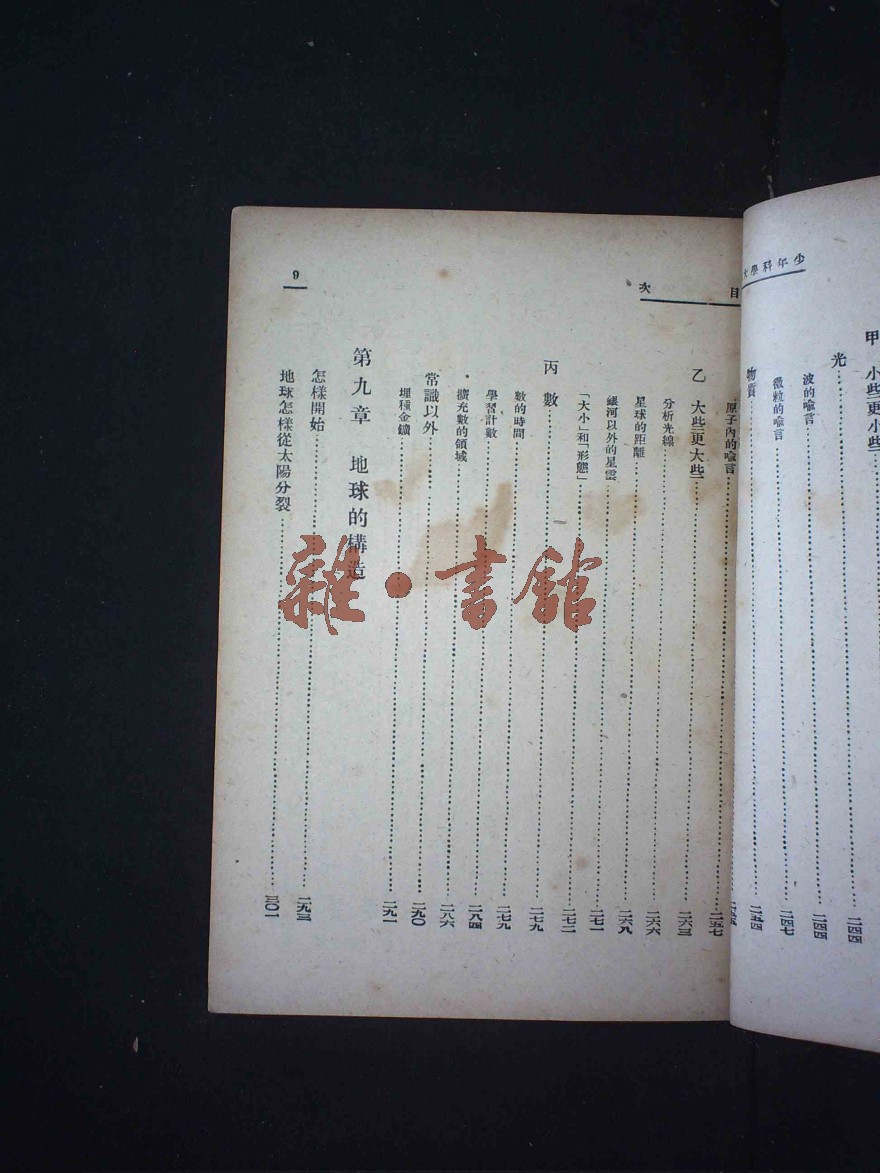 少年科學大
甲 小些更小些
光 二四四
波的喻言 二四四
微粒的喻言 二四七
物質 二五四
目次
二五五
原子內的喻言 二五七
乙 大些更大些 二六三
分析光線 二六六
星球的距離 二六八
銀河以外的星雲 二七一
「大小」和「形態」 二七二
丙 數 二七九
數的時間 二七九
學習計數 二八四
擴充數的領域 二八六
常識以外 二九〇
埋種金鑛 二九一
第九章 地球的構造
怎樣開始 二九三
地球怎樣從太陽分裂 三〇一
9
雜·書館